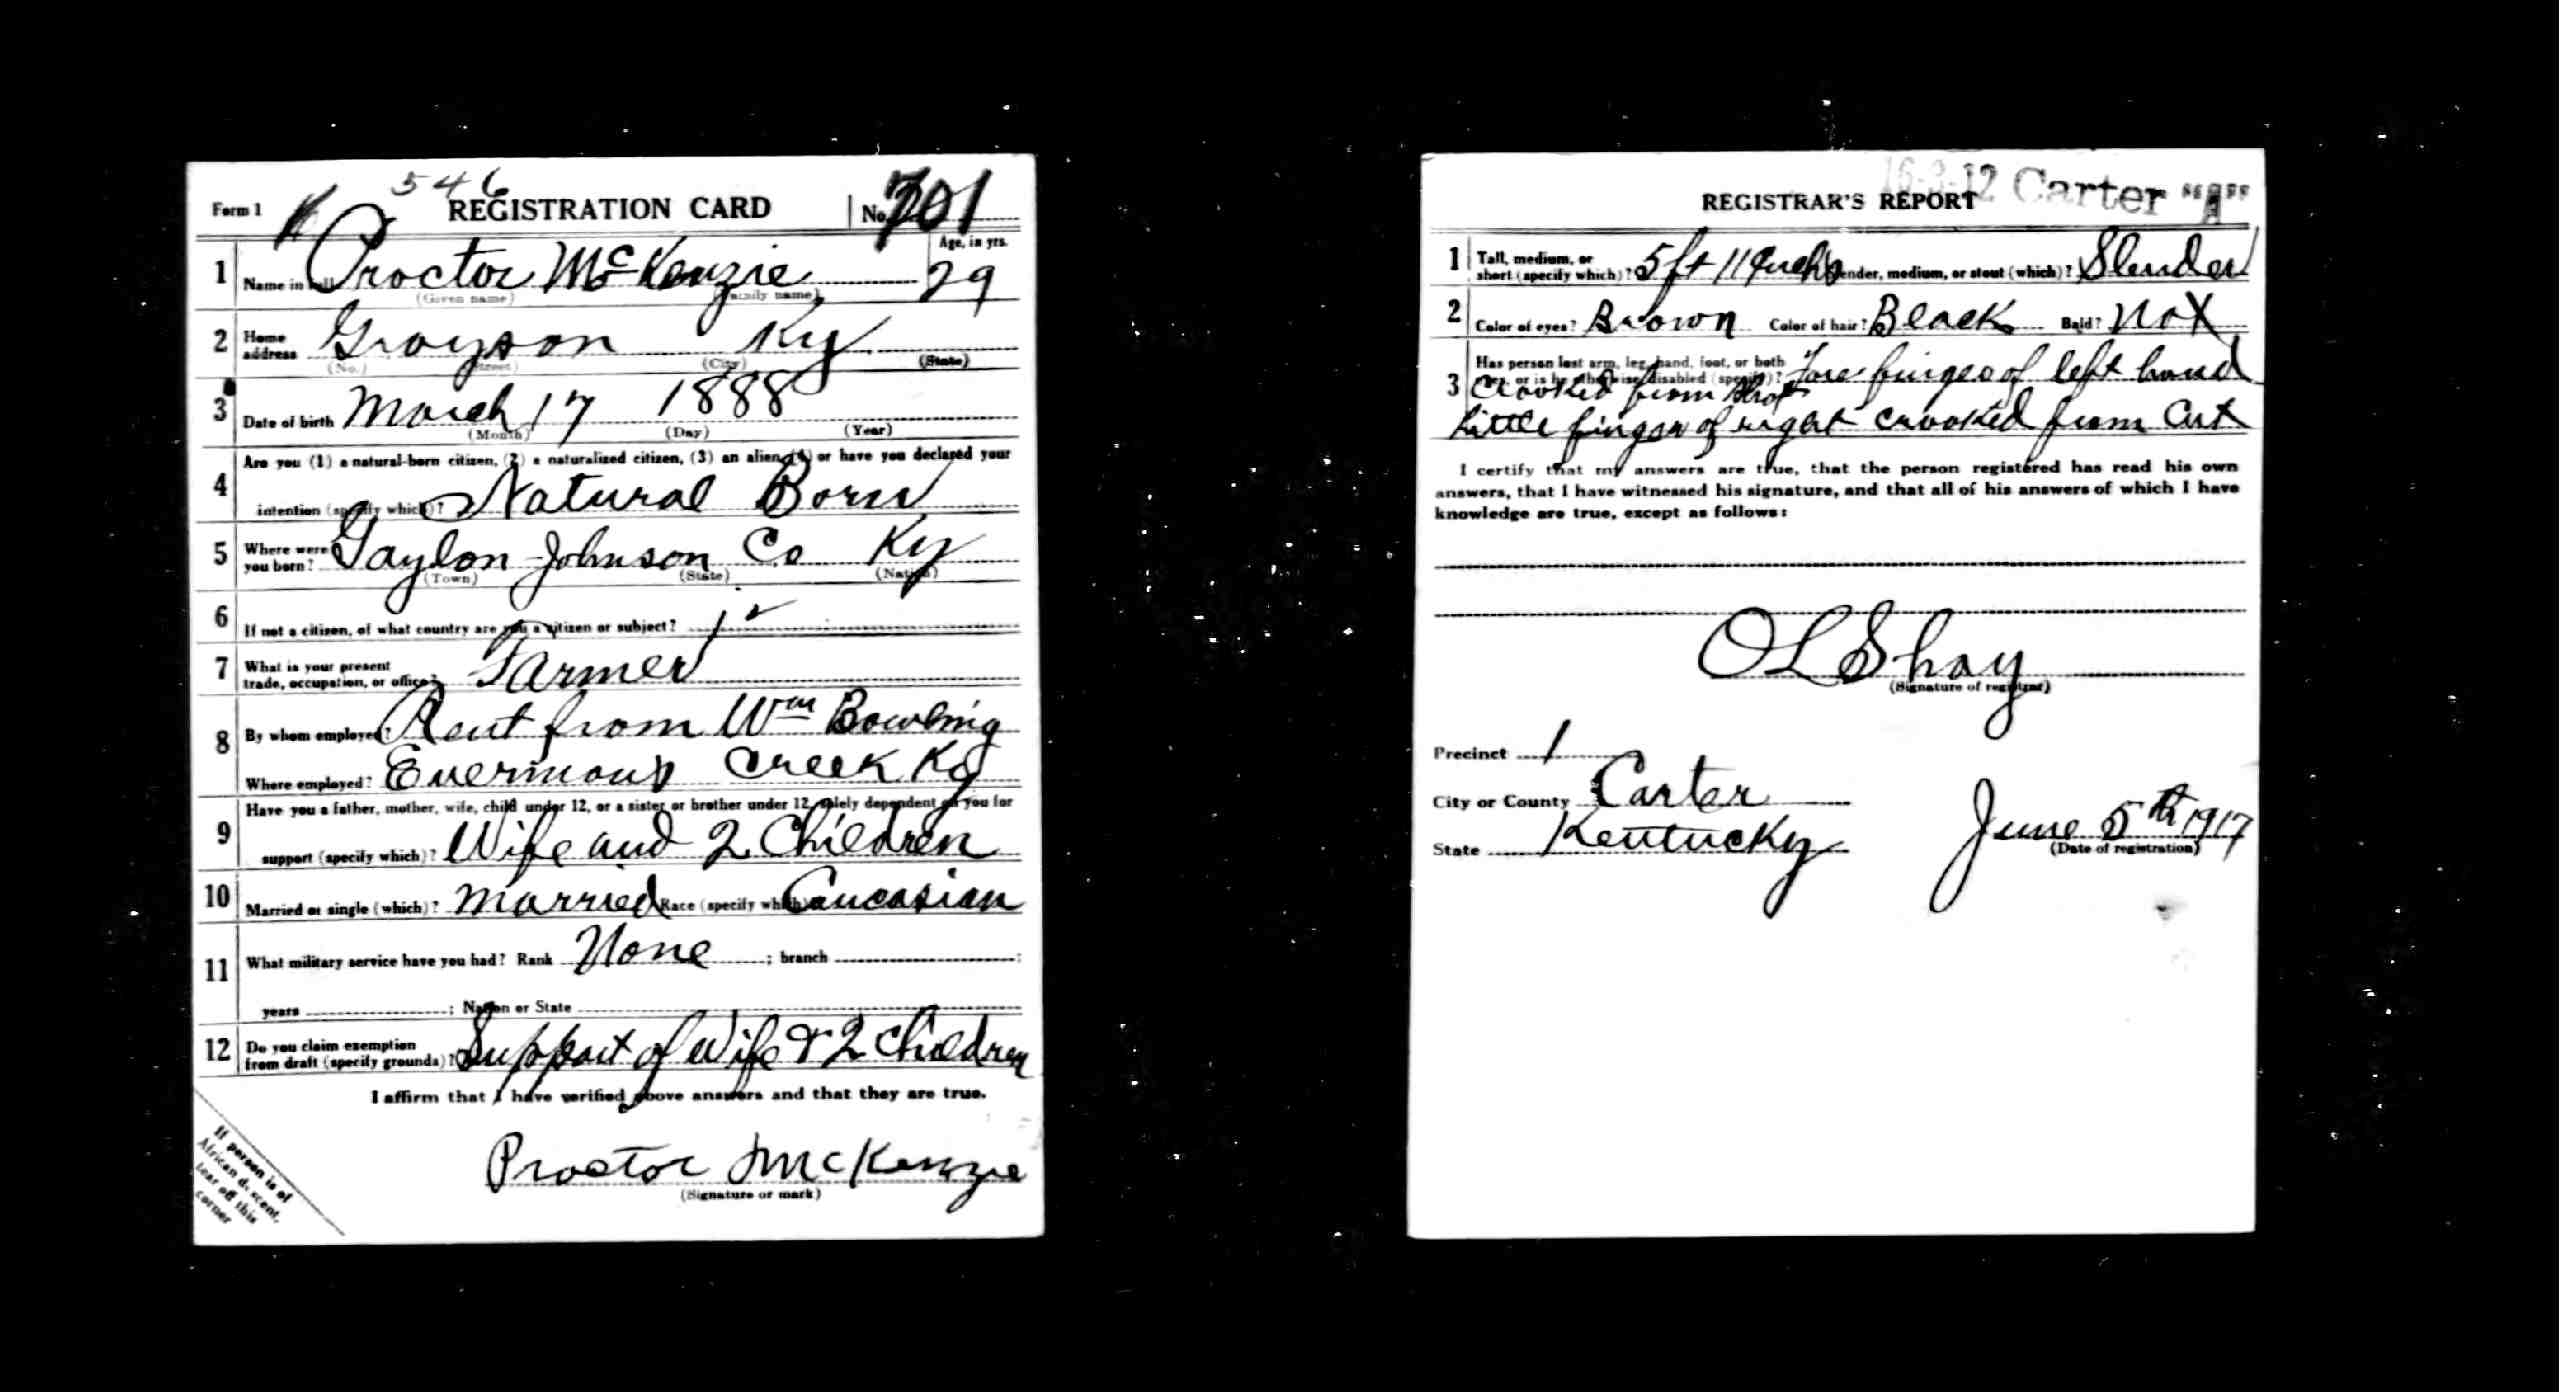 546
Form 1 REGISTRATION CARD No. 701
1 Name in full Proctor McKenzie Age, in yrs. 29
(Given name) (Family name)
2 Home address Grayson Ky
(No.) (Street) (City) (State)
3 Date of birth March 17 1888
(Month) (Day) (Year)
4 Are you (1) a natural-born citizen, (2) a naturalized citizen, (3) an alien, (4) or have you declared your
intention (specify which)? Natural Born
5 Where were you born? Taylor Johnson Co Ky
(Town) (State) (Nation)
6 If not a citizen, of what country are you a citizen or subject?
7 What is your present trade, occupation, or office? Farmer
8 By whom employed? Rent from Wm Bowling
Where employed? Creek Ky
9 Have you a father, mother, wife, child under 12, or a sister or brother under 12, solely dependent on you for
support (specify which)? Wife and 2 Children
10 Married or single (which)? Married Race (specify which)? Caucasian
11 What military service have you had? Rank None ; branch ;
years ; Nation or State
12 Do you claim exemption from draft (specify grounds)? Support of Wife & 2 Children
I affirm that I have verified above answers and that they are true.
Proctor McKenzie
(Signature or mark)
If person is of
African descent,
tear off this
corner
16-3-12 Carter "A"
REGISTRAR'S REPORT
1 Tall, medium, or short (specify which)? 5 ft 11 Inchs Slender, medium, or stout (which)? Slender
2 Color of eyes? Brown Color of hair? Black Bald? Not
3 Has person lost arm, leg, hand, foot, or both eyes, or is he otherwise disabled (specify)? Fore finger of left hand
Crooked from Shot
Little finger of right crooked from Cut
I certify that my answers are true, that the person registered has read his own
answers, that I have witnessed his signature, and that all of his answers of which I have
knowledge are true, except as follows:
O L Shay
(Signature of registrar)
Precinct 1
City or County Carter
State Kentucky June 5th 1917
(Date of registration)